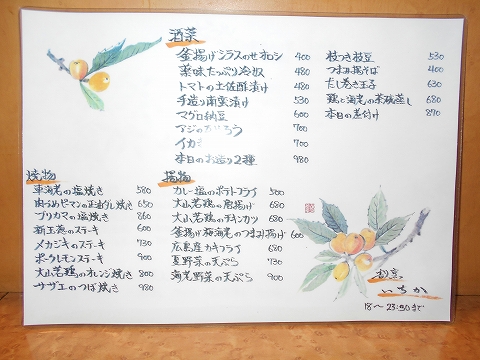 酒菜
釜揚げシラスのせオロシ 400
薬味たっぷり冷奴 480
トマトの土佐酢漬け 480
手造り南蛮漬け 530
マグロ納豆 600
アジの 700
イカ 700
本日のお造り2種 980
枝つき枝豆 530
つまみ揚そば 400
だし巻き玉子 630
鶏と海老の茶碗蒸し 680
本日の煮付け 870
焼物
車海老の塩焼き 580
肉づめピーマンの正油ダレ焼き 650
ブリカマの塩焼き 860
新玉葱のステーキ 600
メカジキのステーキ 730
ポークレモンステーキ 900
大山若鶏のオレンジ焼き 800
サザエのつぼ焼き 980
揚物
カレー塩のポテトフライ 500
大山若鶏の唐揚げ 680
大山若鶏のチキンカツ 680
釜揚げ桜海老のつまみ揚げ 600
広島産カキフライ 680
夏野菜の天ぷら 730
海老野菜の天ぷら 900
いちか
18〜23:30まで